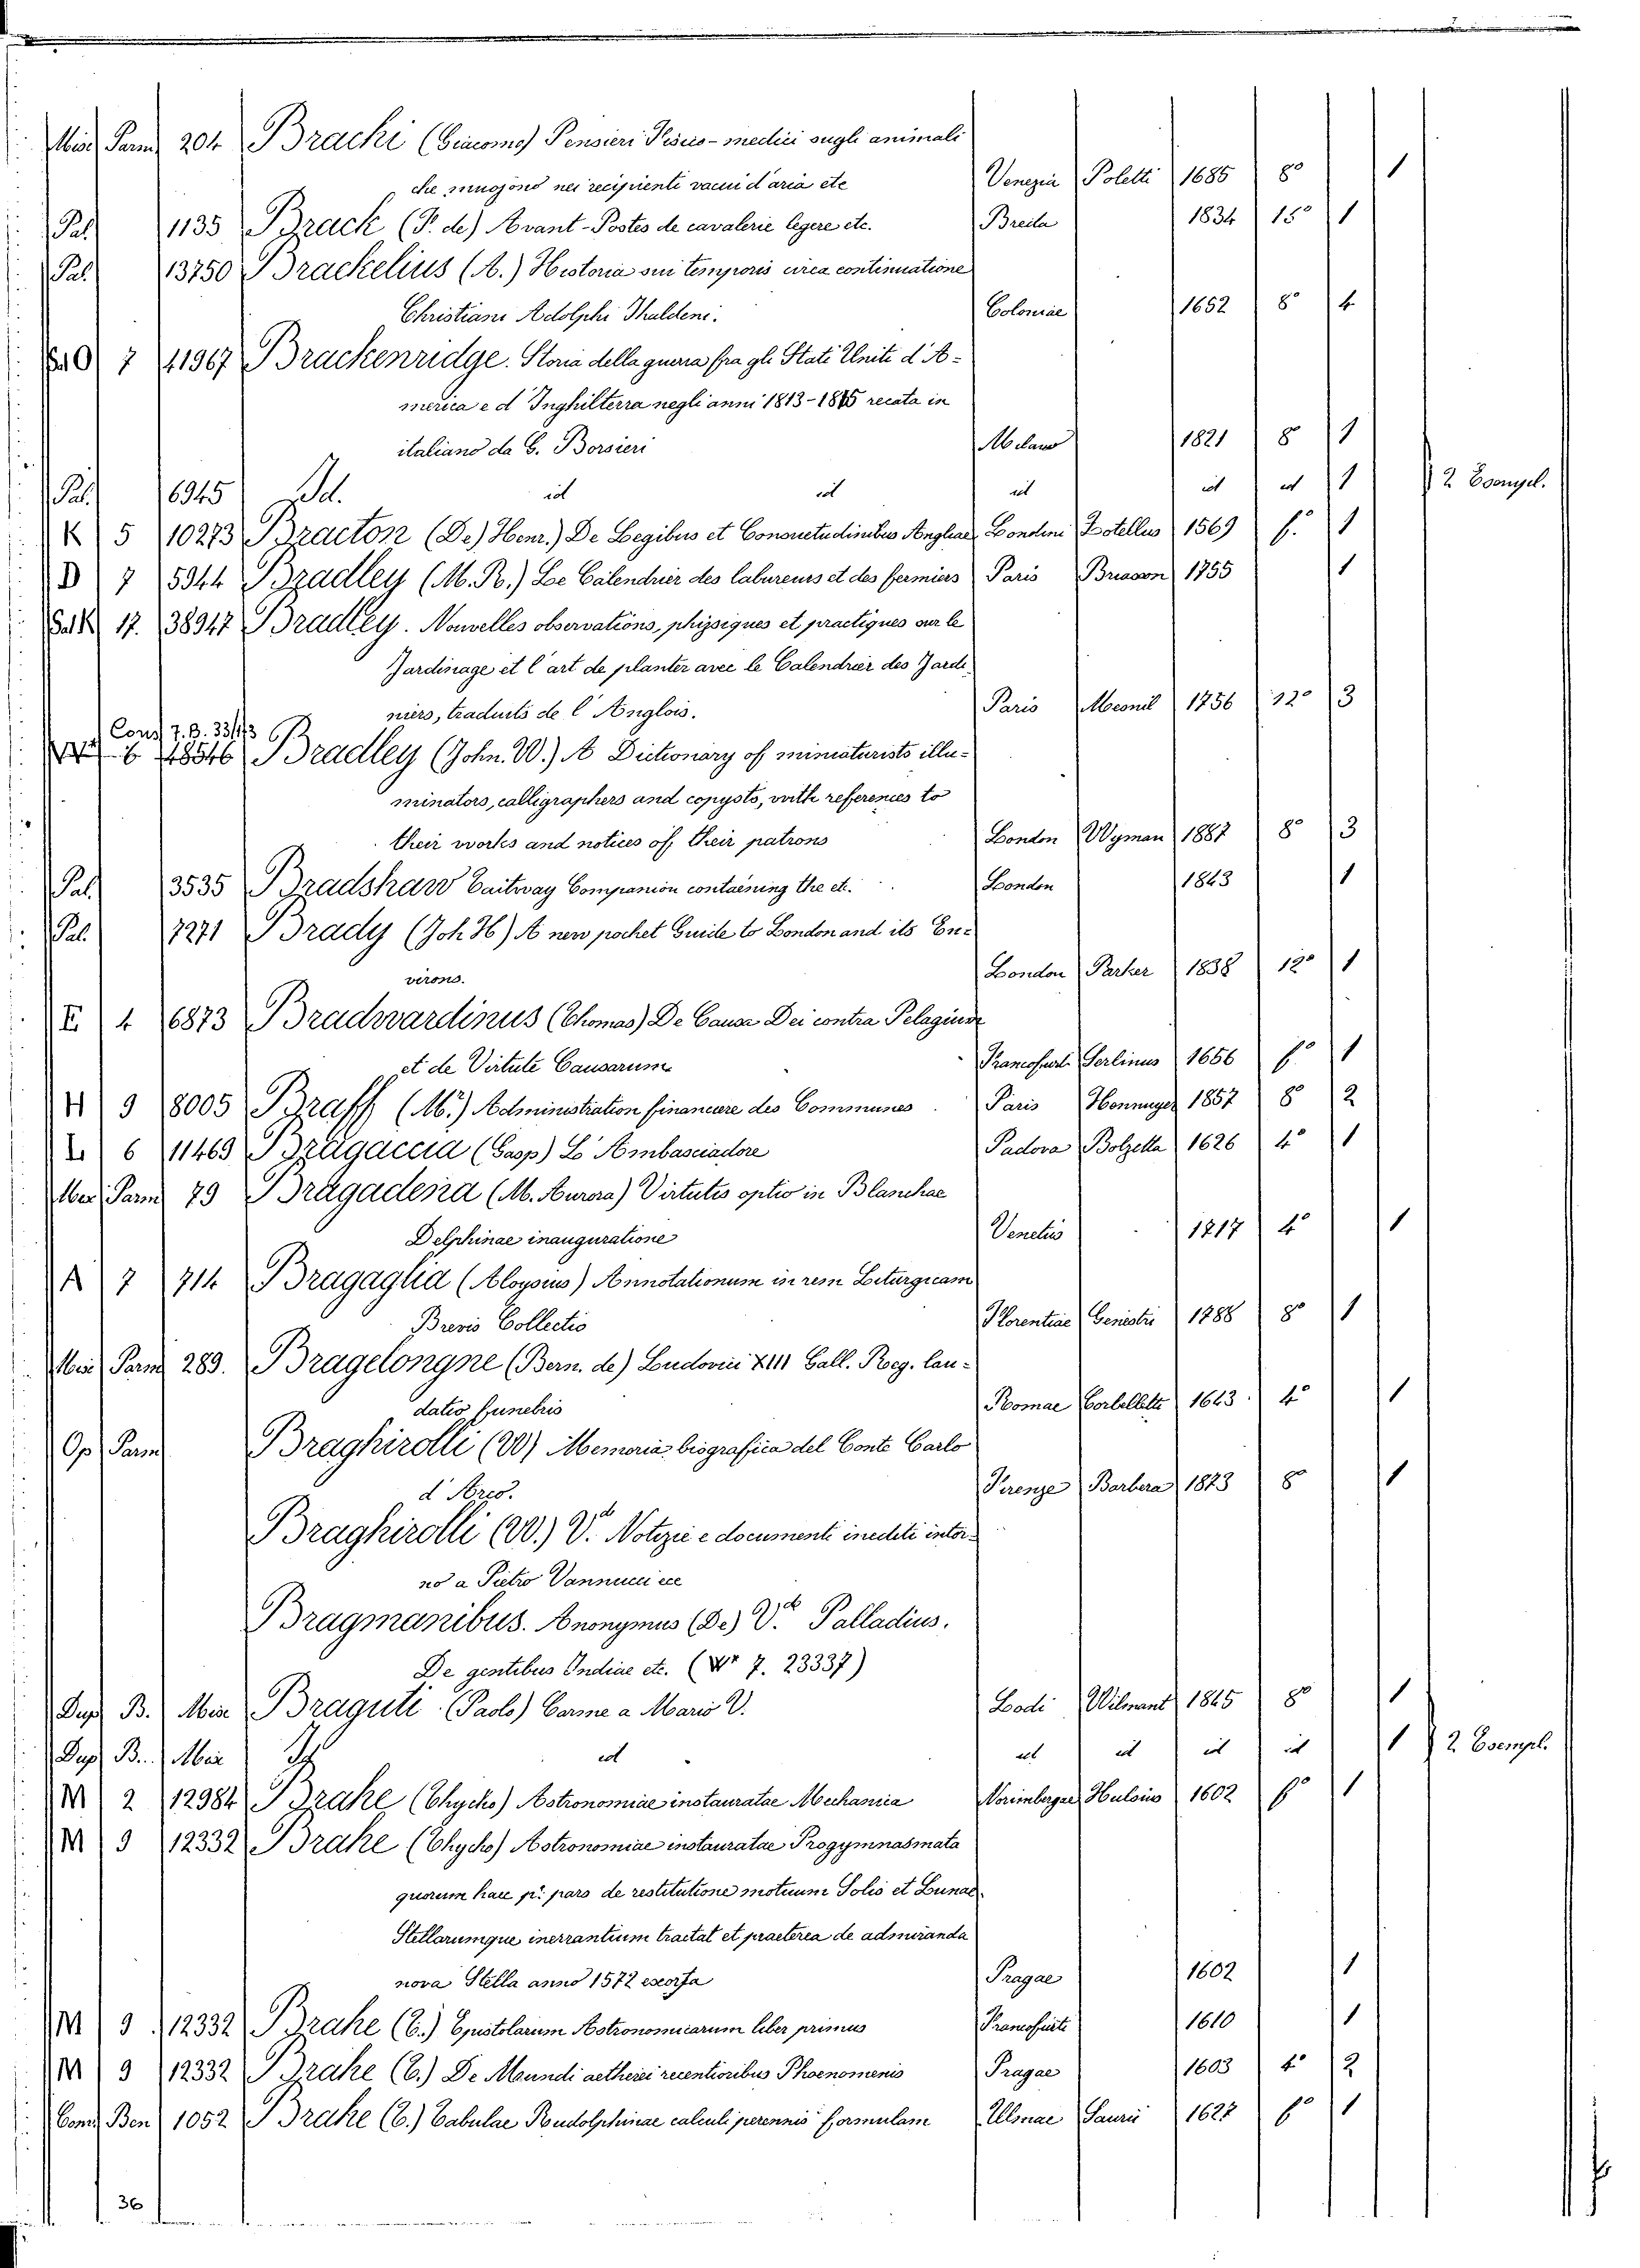 Misc. Parm. 204 Brachi (Giacomo) Pensieri Fisico-medici sugli animali
che muojono nei recipienti vacui d'aria etc Venezia Poletti 1685 8° 1
Pal. 1135 Brack (F. de) Avant-Postes de cavalerie legere etc. Breda 1834 15° 1
Pal. 13750 Brackelius (A.) Historia sui temporis circa continuatione
Christiani Adolphi Thuldeni. Coloniae 1652 8° 4
Sal O 7 41967 Brackenridge. Storia della guerra fra gli Stati Uniti d'A-
merica e d'Inghilterra negli anni 1813-1815 recata in
italiano da G. Borsieri Milano 1821 8 1
Pal. 16945 Id. id id id id id 1 2 Esempl.
K 5 10273 Bracton (De) Henr.) De Legibus et Consuetudinibus Angliae Londini Totellus 1569 f. 1
D 7 5344 Bradley (M. R.) Le Calendrier des labureurs et des fermiers Paris Briasson 1755 1
Sal K 17. 38947 Bradley. Nouvelles observations, physiques et practiques sur le
Jardinage et l'art de planter avec le Calendrier des Jardi-
niers, traduits de l'Anglois. Paris Mesnil 1756 12° 3
Cons 7. B. 33/1/3
6 48546 Bradley (John. W.) A Dictionary of miniaturists illu-
minators, calligraphers and copysts, with references to
their works and notices of their patrons London Wyman 1887 8° 3
Pal. 3535 Bradshaw Railway Companion containing the etc. London 1843 1
Pal. 7271 Brady (Joh H) A new pocket Guide to London and its En-
virons. London Parker 1838 12° 1
E 4 6873 Bradwardinus (Thomas) De Causa Dei contra Pelagium
et de Virtute Causarum Francofurti Gerlinus 1656 f° 1
H 9 8005 Braff (M.) Administration financiere des Communes Paris Hennuyer 1857 8° 2
L 6 11469 Bragaccia (Gasp) L'Ambasciadore Padova Bolzetta 1626 4° 1
Misc. Parm 79 Bragadena (M. Aurora) Virtutis optio in Blanchae
Delphinae inauguratione Venetiis 1717 4° 1
A 7 714 Bragaglia (Aloysius) Annotationum in rem Liturgicam
Brevis Collectio Florentiae Genistri 1788 8° 1
Misc Parm 289. Bragelongne (Bern. de) Ludovici XIII Gall. Reg. lau-
datio funebris Romae Corbelletti 1643 4° 1
Op Parm Braghirolli (W) Memoria biografica del Conte Carlo
d'Arco. Firenze Barbera 1873 8° 1
Braghirolli (W.) V. Notizie e documenti inediti intor-
no a Pietro Vannucci ecc
Bragmanibus. Anonymus (De) V. Palladius.
De gentibus Indiae etc. ( 7. 23337)
Dup B. Mis Braguti (Paolo) Carme a Mario V. Lodi Wilmant 1845 8° 1
Dup B. Mis Id id id id id id 1 2 Esempl.
M 2 12984 Brahe (Thycho) Astronomiae instauratae Mechanica Norimbergae Hulsius 1602 f° 1
M 9 12332 Brahe (Thycho) Astronomiae instauratae Progymnasmata
quorum haec p. pars de restitutione motuum Solis et Lunae
Stellarumque inerrantium tractat et praeterea de admiranda
nova Stella anno 1572 exorta Pragae 1602 1
M 9 12332 Brahe (T.) Epistolarum Astronomicarum liber primus Francofurti 1610 1
M 9 12332 Brahe (T.) De Mundi aetherei recentioribus Phoenomenis Pragae 1603 4° 2
Com Ben 1052 Brahe (T.) Tabulae Rudolphinae calculi perennis formulam Ulmae Saurii 1627 f° 1
36